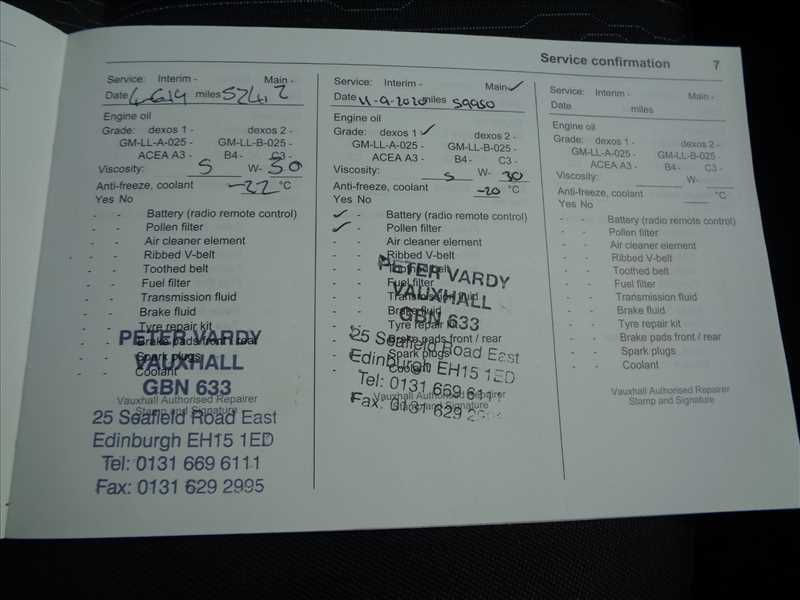 Service confirmation 7
Service: Interim - Main -
Date 4-6-19 miles 52412
Engine oil
Grade: dexos 1 - dexos 2 -
GM-LL-A-025 - GM-LL-B-025 -
ACEA A3 - B4 - C3 -
Viscosity: 5 W- 30
Anti-freeze, coolant -22 °C
Yes No
- - Battery (radio remote control)
- - Pollen filter
- - Air cleaner element
- - Ribbed V-belt
- - Toothed belt
- - Fuel filter
- - Transmission fluid
- - Brake fluid
- - Tyre repair kit
- - Brake pads front / rear
- - Spark plugs
- - Coolant
Vauxhall Authorised Repairer
Stamp and Signature
PETER VARDY
VAUXHALL
GBN 633
25 Seafield Road East
Edinburgh EH15 1ED
Tel: 0131 669 6111
Fax: 0131 629 2995
Service: Interim - Main ✓
Date 11-9-2020 miles 59950
Engine oil
Grade: dexos 1 ✓ dexos 2 -
GM-LL-A-025 - GM-LL-B-025 -
ACEA A3 - B4 - C3 -
Viscosity: 5 W- 30
Anti-freeze, coolant -20 °C
Yes No
✓ - Battery (radio remote control)
✓ - Pollen filter
- - Air cleaner element
- - Ribbed V-belt
- - Toothed belt
- - Fuel filter
- - Transmission fluid
- - Brake fluid
- - Tyre repair kit
- - Brake pads front / rear
- - Spark plugs
- - Coolant
Vauxhall Authorised Repairer
Stamp and Signature
PETER VARDY
VAUXHALL
GBN 633
25 Seafield Road East
Edinburgh EH15 1ED
Tel: 0131 669 6111
Fax: 0131 629 2995
Service: Interim - Main -
Date miles
Engine oil
Grade: dexos 1 - dexos 2 -
GM-LL-A-025 - GM-LL-B-025 -
ACEA A3 - B4 - C3 -
Viscosity: W-
Anti-freeze, coolant °C
Yes No
- - Battery (radio remote control)
- - Pollen filter
- - Air cleaner element
- - Ribbed V-belt
- - Toothed belt
- - Fuel filter
- - Transmission fluid
- - Brake fluid
- - Tyre repair kit
- - Brake pads front / rear
- - Spark plugs
- - Coolant
Vauxhall Authorised Repairer
Stamp and Signature